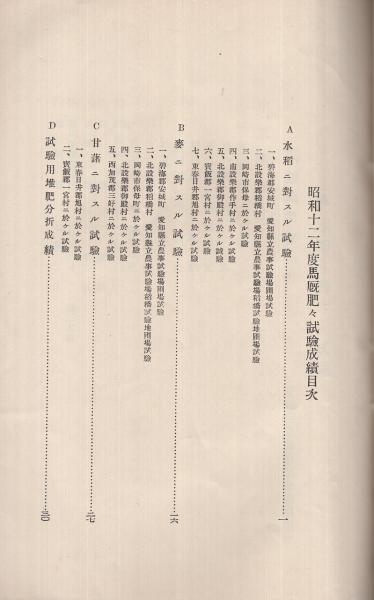 昭和十二年度馬厩肥々試驗成績目次
A 水稻ニ對スル試驗…………一
一、碧海郡安城町 愛知縣立農事試驗場圃場試驗
二、北設樂郡稻橋村 愛知縣立農事試驗場稻橋試驗地圃場試驗
三、岡崎市保母ニ於ケル試驗
四、南設樂郡作手村ニ於ケル試驗
五、北設樂郡御殿村ニ於ケル試驗
六、寶飯郡一宮村ニ於ケル試驗
七、東春日井郡旭村ニ於ケル試驗
B 麥ニ對スル試驗…………一六
一、碧海郡安城町 愛知縣立農事試驗場圃場試驗
二、北設樂郡稻橋村 愛知縣立農事試驗場稻橋試驗地圃場試驗
三、岡崎市保母町ニ於ケル試驗
四、北設樂郡御殿村ニ於ケル試驗
五、西加茂郡三好村ニ於ケル試驗
C 甘藷ニ對スル試驗…………二七
一、東春日井郡旭村ニ於ケル試驗
二、寶飯郡一宮村ニ於ケル試驗
D 試驗用堆肥分折成績…………三〇